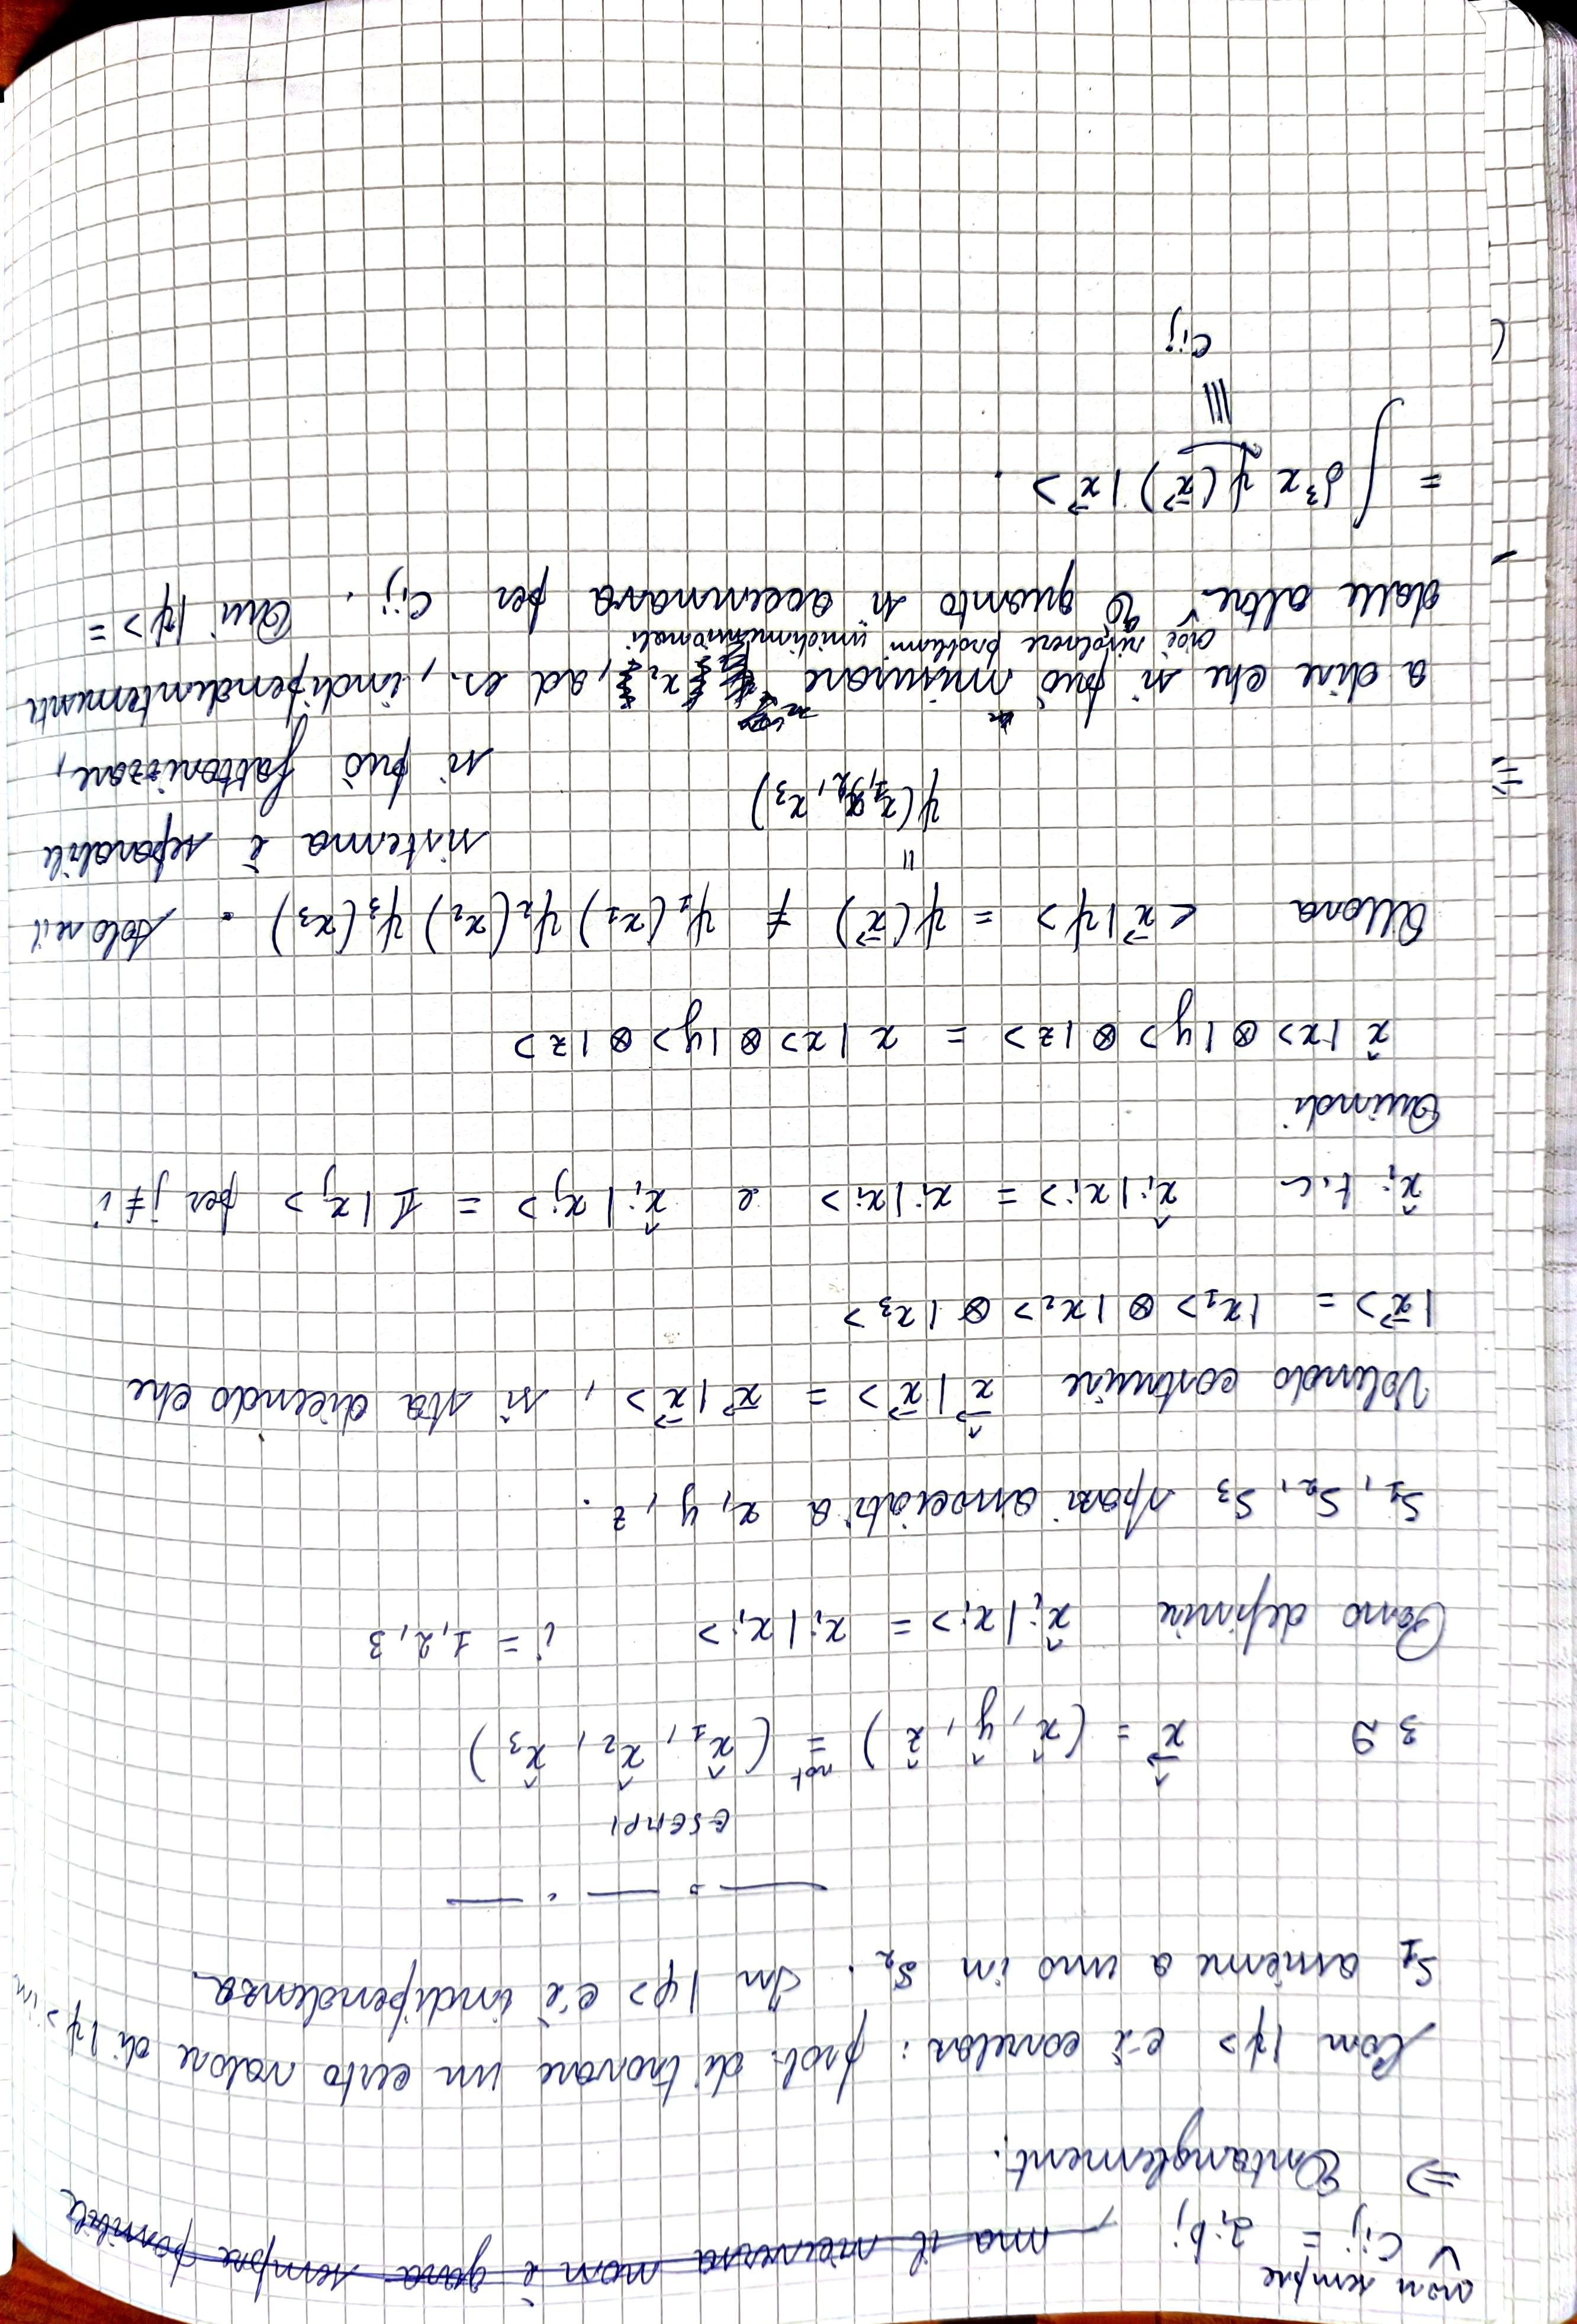 non sempre
c_ij = a_i b_j , ma il viceversa non è garà sempre possibile
⇒ Entanglement.
Con |ψ> c'è correlaz: prob. di trovare un certo valore di |ψ> in
S_1 assieme a uno in S_2. In |φ> c'è indipendenza.
ESEMPI
3D x̂⃗ = (x̂, ŷ, ẑ) not= (x̂_1, x̂_2, x̂_3)
Posso definire x̂_i |x_i> = x_i |x_i> i = 1,2,3
S_1, S_2, S_3 spazi associati a x, y, z.
Volendo costruire x̂⃗ |x⃗> = x⃗ |x⃗>, si sta dicendo che
|x⃗> = |x_1> ⊗ |x_2> ⊗ |x_3>
x̂_i t.c. x̂_i |x_i> = x_i |x_i> e x̂_i |x_j> = 1 |x_j> per j≠i
Quindi
x̂ |x> ⊗ |y> ⊗ |z> = x |x> ⊗ |y> ⊗ |z>
Allora <x⃗|ψ> = ψ(x⃗) ≠ ψ_1(x_1) ψ_2(x_2) ψ_3(x_3). Solo se il
=
sistema è separabile
ψ(x_1, x_2, x_3)
si può fattorizzare,
a dire che si può misurare x_2, ad es., indipendentemente
cioè risolvere problemi unidimensionali
dalle altre. È quanto si accennava per c_ij. Qui |ψ> =
= ∫ d³x ψ(x⃗) |x⃗>.
≡
c_ij